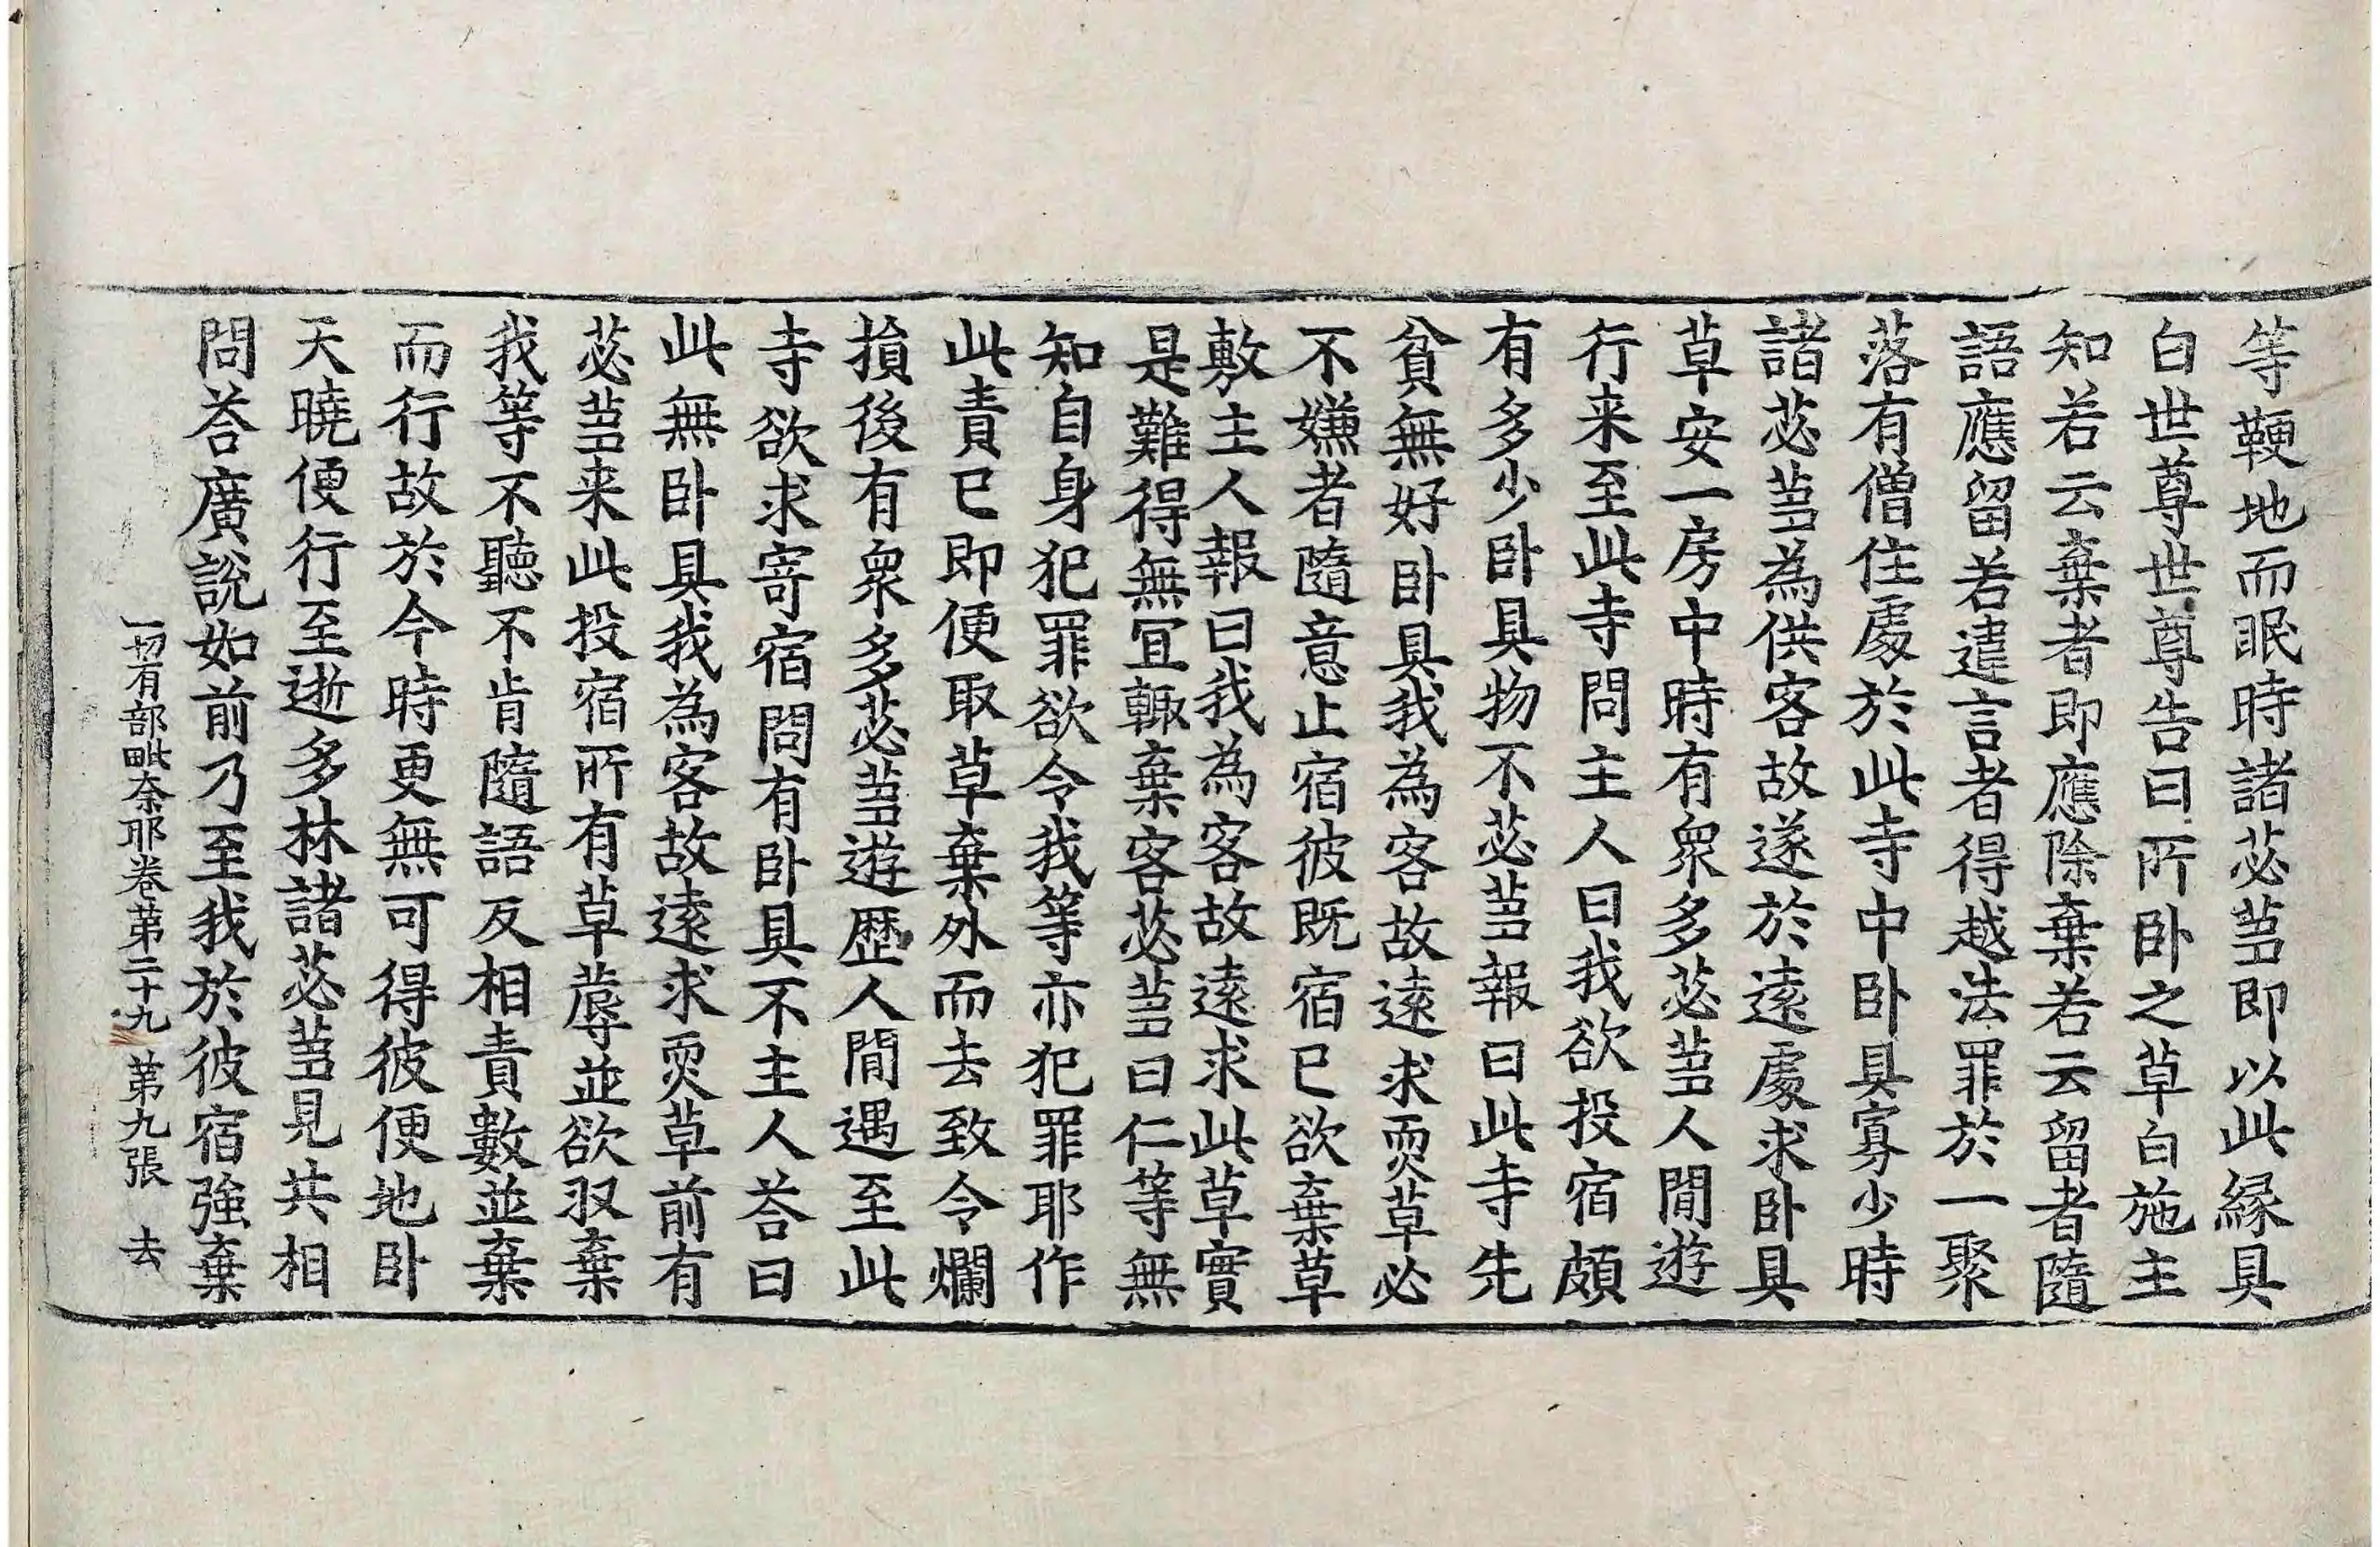 等鞕地而眠時諸苾芻即以此緣具
白世尊世尊告曰所卧之草白施主
知若云棄者即應除棄若云留者隨
語應留若違言者得越法罪於一聚
落有僧住處於此寺中卧具寡少時
諸苾芻為供客故遂於遠處求卧具
草安一房中時有衆多苾芻人間遊
行来至此寺問主人曰我欲投宿頗
有多少卧具物不苾芻報曰此寺先
貧無好卧具我為客故遠求耎草必
不嫌者隨意止宿彼既宿已欲棄草
敷主人報曰我為客故遠求此草實
是難得無宜輙棄客苾芻曰仁等無
知自身犯罪欲令我等亦犯罪耶作
此責已即便取草棄外而去致令爛
損後有衆多苾芻遊歷人間遇至此
寺欲求寄宿問有卧具不主人荅曰
此無卧具我為客故遠求耎草前有
苾芻来此投宿所有草蓐並欲収棄
我等不聽不肯隨語反相責數並棄
而行故於今時更無可得彼便地卧
天曉便行至逝多林諸苾芻見共相
問荅廣說如前乃至我於彼宿強棄
一切有部毗奈耶卷第二十九　第九張　去